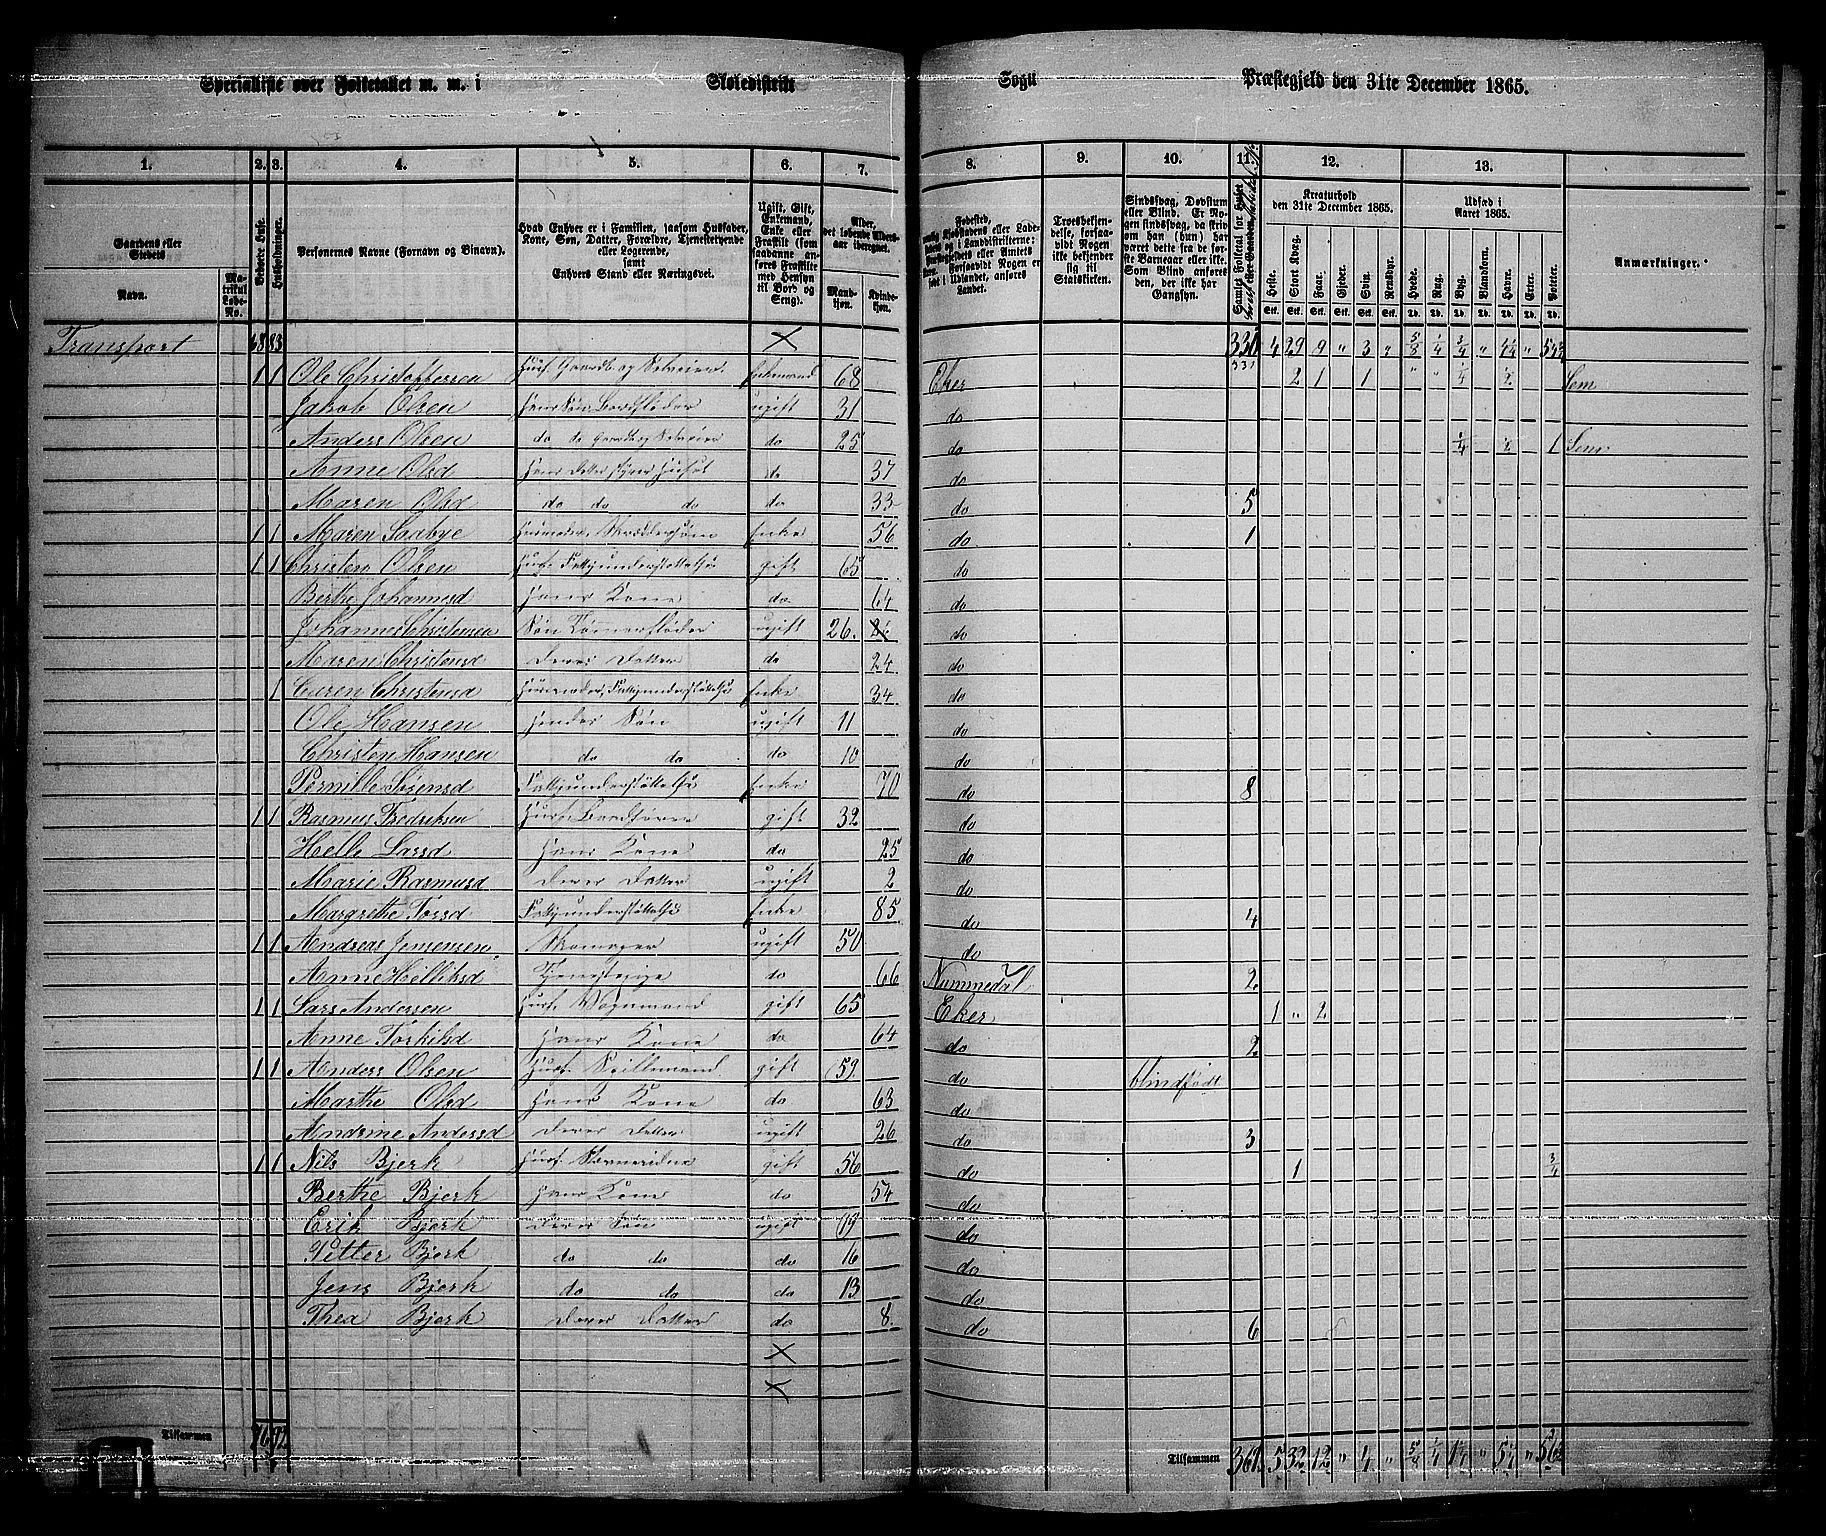 Specialliste over Folketallet m. m. i Skoledistrikt Sogn Præstegjeld den 31te December 1865.
1. 2. 3. 4. 5. 6. 7. 8. 9. 10. 11. 12. 13.
Gaardens eller Stedets
Navn.
Matrikul Løbe-No.
Bebøete Huse.
Husholdninger.
Personernes Navne (Fornavn og Binavn).
Hvad Enhver er i Familien, saasom Husfader, Kone, Søn, Datter, Forældre, Tjenestetyende eller Logerende,
samt
Enhvers Stand eller Næringsvei.
Ugift, Gift, Enkemand, Enke eller Fraskilt (som saadanne anføres Fraskilte med Hensyn til Bord og Seng).
Alder, det løbende Alders-aar iberegnet.
Mandkjøn. Kvindekjøn.
Troesbekjendelse, forsaavidt Nogen ikke bekjender sig til Statskirken.
Sindssvag, Døvstum eller Blind. Er Nogen sindssvag, da skrives om han (hun) har været dette fra de første Barneaar eller ikke. Som Blind anføres den, der ikke har Gangsyn.
Kreaturhold den 31te December 1865.
Heste. Stort Kvæg. Faar. Gjeder. Svin. Rensdyr.
Udsæd i Aaret 1865.
Hvede. Rug. Byg. Blandkorn. Havre. Erter. Poteter.
Anmærkninger.
Transport 83 × 331 4 29 9 " 3 " 5/8 1/4 3/4 " 4 1/4 "
1 1 Ole Christoffersen Husf. Gaardb. og Selveier Enkemand 68 Eker 2 1 1 " " 1/4 1/2
Jakob Olsen Hans Søn ugift 31 do
Anders Olsen do do Gaardb. og Selveier do 25 do 1/4 1/2 1
Anne Olsd Hans Datter styrer Huset do 37 do
Maren Olsd do do do do 33 do 5
1 1 Maren Saabye Enke 56 do 1
1 1 Christen Olsen Husf. Fattigunderstøttelse gift 65 do
Berthe Johannesd Hans Kone do 64 do
Johannes Christensen Søn ugift 26. do
Maren Christensd Deres Datter do 24 do
1 Caren Christensd Husmoder, Fattigunderstøttelse Enke 34 do
Ole Hansen Hendes Søn ugift 11 do
Christen Hansen do do do 10 do
Pernille Sørensd Fattigunderstøttelse Enke 70 do 8
1 1 Rasmus Fredriksen Husf. gift 32 do
Helle Larsd Hans Kone do 25 do
Marie Rasmusd Deres Datter ugift 2 do
Margrethe Torsd Fattigunderstøttelse Enke 85. do 4
1 1 Andreas Jensensen Skomager ugift 50 do
Anne Helliksd Tjenestepige do 66 Nummedal 2.
1 1 Lars Andersen Husf. Vognmand gift 65 Eker 1 " 2
Anne Torkilsd Hans Kone do 64 do 2
1 1 Anders Olsen Husf. Spillemand gift 59 do blindfødt
Marthe Olsd Hans Kone do 63 do
Andrine Andersd Deres Datter ugift 26 do 3
1 1 Nils Bjerk Husf. gift 56 do 1 3/4
Berthe Bjerk Hans Kone do 54 do
Erik Bjerk Deres Søn ugift 19 do
Petter Bjerk do do do 16 do
Jens Bjerk do do do 13 do
Thea Bjerk Deres Datter do 8. do 6
×
×
Tilsammen 92 Tilsammen 361 5 32 12 " 4 "